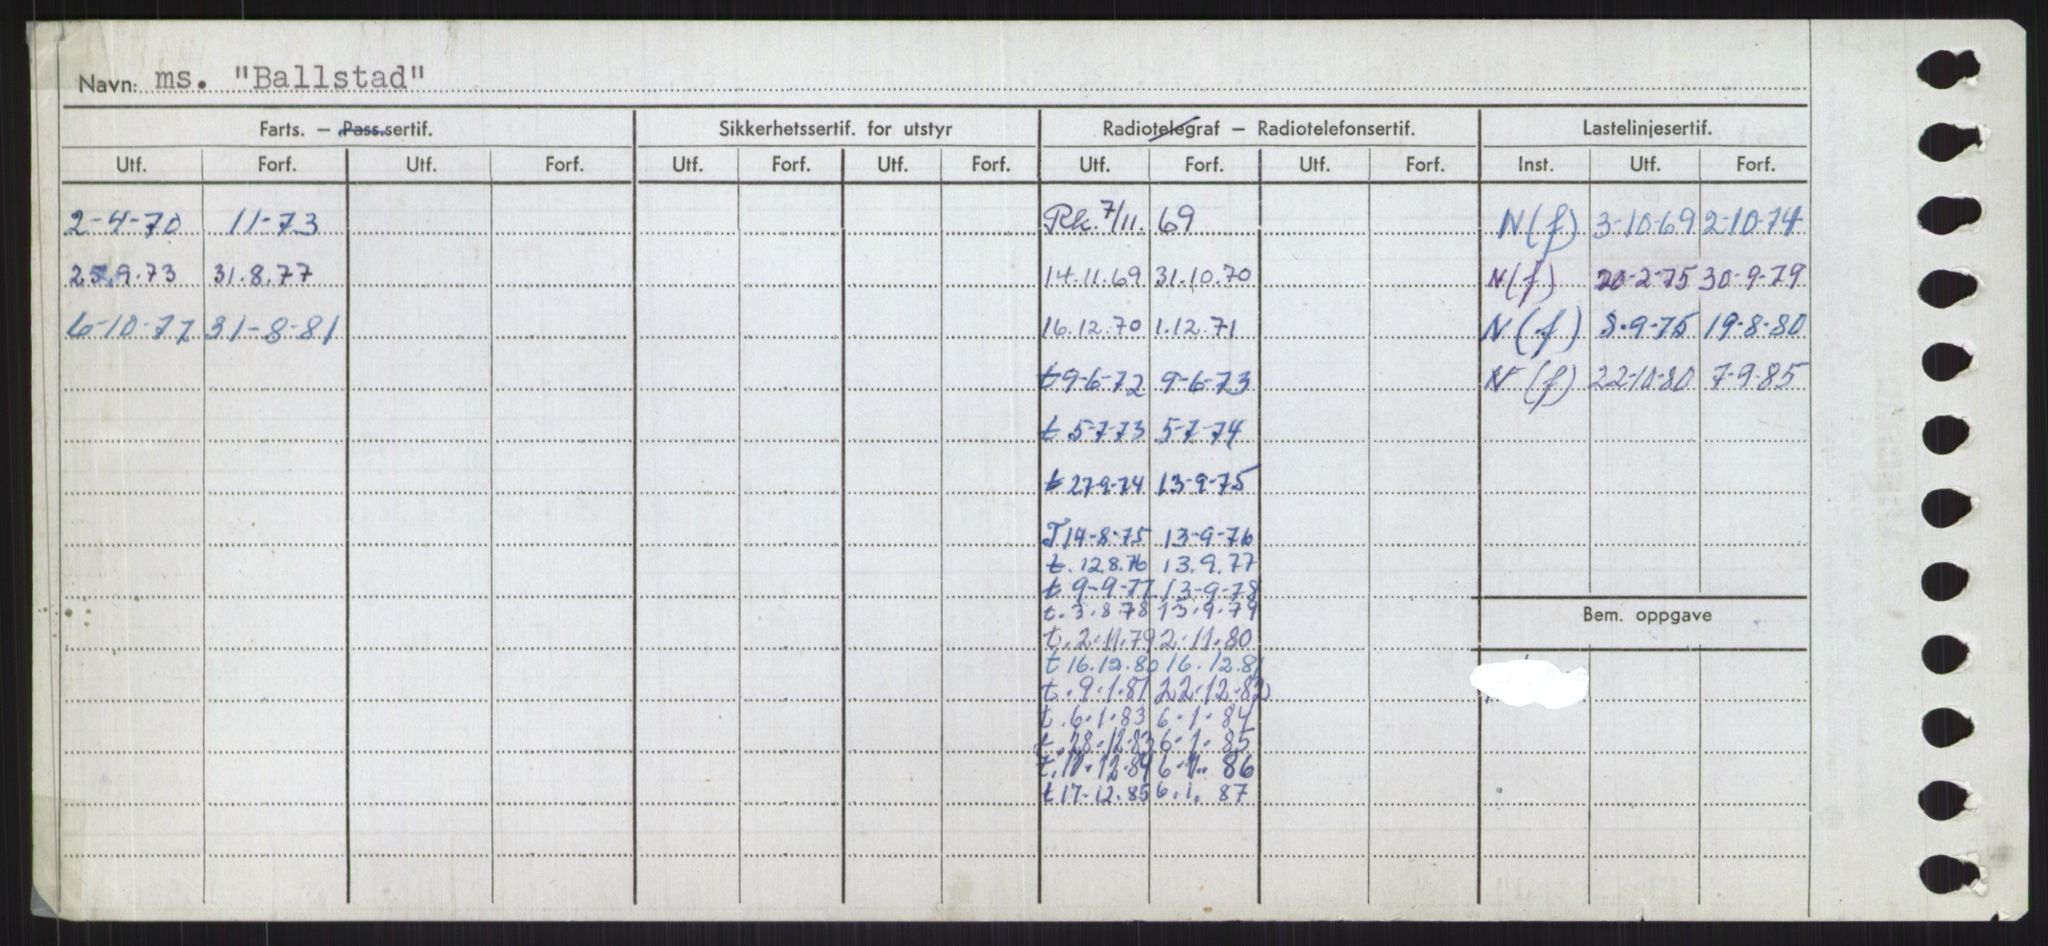 Navn: ms. "Ballstad"
Farts. — Pass.sertif. Sikkerhetssertif. for utstyr Radiotelegraf — Radiotelefonsertif. Lastelinjesertif.
Utf. Forf. Utf. Forf. Utf. Forf. Utf. Forf. Utf. Forf. Utf. Forf. Inst. Utf. Forf.
2-4-70 11-73 Rk. 7/11. 69 N(f) 3-10-69 2-10-74
25.9.73 31.8.77 14.11.69 31.10.70 N(f) 20-2-75 30-9-79
6-10-77 31-8-81 16.12.70 1.12.71 N(f) 8-9-75 19-8-80
t 9-6-72 9-6-73 N(f) 22-10-80 7-9-85
t 5-7-73 5-7-74
t 27-9-74 13-9-75
T 14-8-75 13-9-76
t. 12.8.76 13.9.77
t 9-9-77 13-9-78
t. 3.8 78 13.9.79
t. 2.11.79 2.11.80
t 16.12.80 16.12.81
t. 9.1.81 22.12.82
t. 6.1.83 6.1.84
t. 28.12.83 6.1.85
Bem. oppgave
t. 11.12.84 6.1. 86
t 17.12.85 6.1. 87